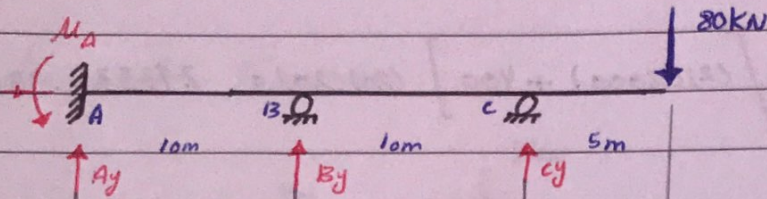 80KN
MA
A
B
C
10m
10m
5m
Ay
By
Cy